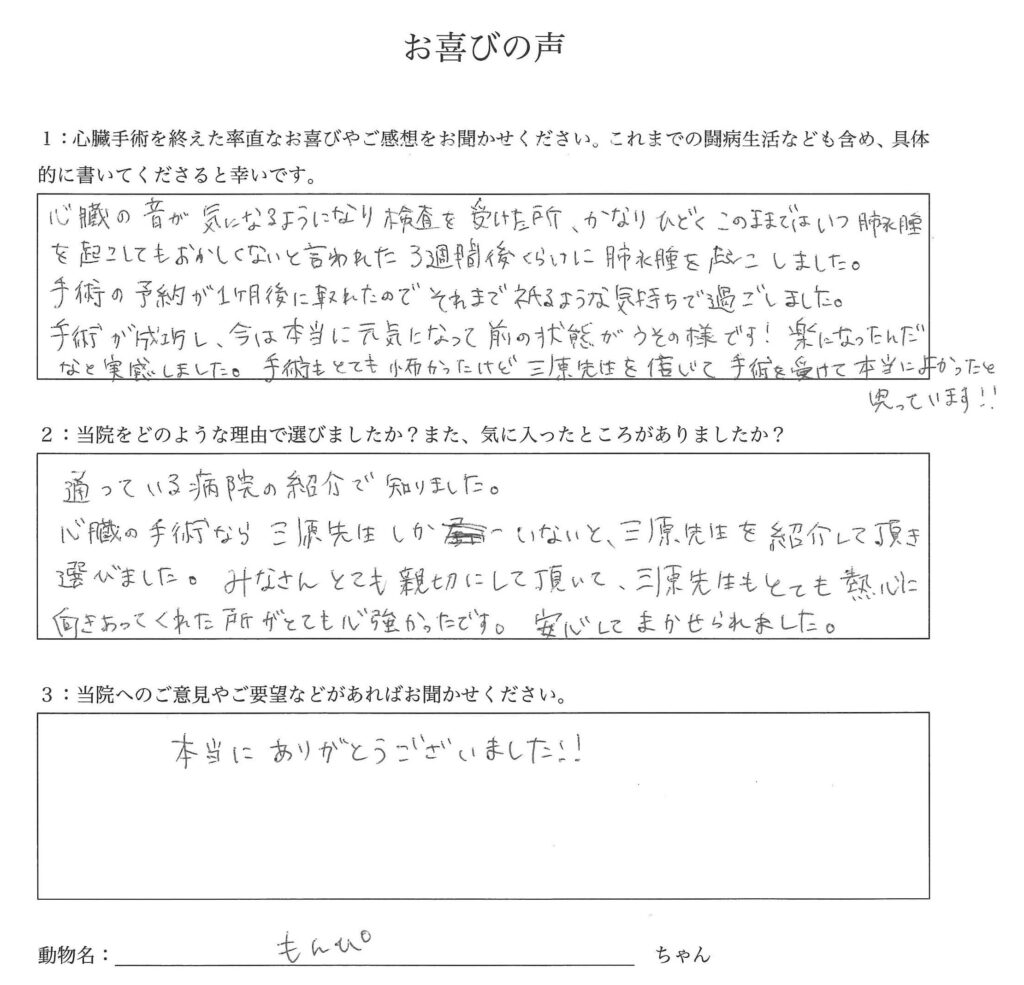 お喜びの声
1：心臓手術を終えた率直なお喜びやご感想をお聞かせください。これまでの闘病生活なども含め、具体
的に書いてくださると幸いです。
心臓の音が気になるようになり検査を受けた所、かなりひどくこのままではいつ肺水腫
を起こしてもおかしくないと言われた3週間後くらいに肺水腫を起こしました。
手術の予約が1ヶ月後に取れたのでそれまで祈るような気持ちで過ごしました。
手術が成功し、今は本当に元気になって前の状態がうその様です！楽になったんだ
なと実感しました。手術もとても怖かったけど三原先生を信じて手術を受けて本当によかったと
思っています!!
2：当院をどのような理由で選びましたか？また、気に入ったところがありましたか？
通っている病院の紹介で知りました。
心臓の手術なら三原先生しかいないと、三原先生を紹介して頂き
選びました。みなさんとても親切にして頂いて、三原先生もとても熱心に
向きあってくれた所がとても心強かったです。安心してまかせられました。
3：当院へのご意見やご要望などがあればお聞かせください。
本当にありがとうございました!!
動物名：もんぴ ちゃん